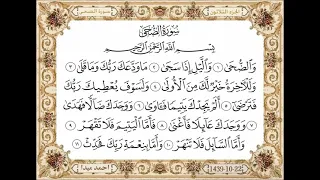 سُورَةُ الضُّحَىٰ
بِسْمِ اللَّهِ الرَّحْمَٰنِ الرَّحِيمِ
وَالضُّحَىٰ ١ وَاللَّيْلِ إِذَا سَجَىٰ ٢ مَا وَدَّعَكَ رَبُّكَ وَمَا قَلَىٰ ٣
وَلَلْآخِرَةُ خَيْرٌ لَكَ مِنَ الْأُولَىٰ ٤ وَلَسَوْفَ يُعْطِيكَ رَبُّكَ
فَتَرْضَىٰ ٥ أَلَمْ يَجِدْكَ يَتِيمًا فَآوَىٰ ٦ وَوَجَدَكَ ضَالًّا فَهَدَىٰ
٧ وَوَجَدَكَ عَائِلًا فَأَغْنَىٰ ٨ فَأَمَّا الْيَتِيمَ فَلَا تَقْهَرْ ٩
وَأَمَّا السَّائِلَ فَلَا تَنْهَرْ ١٠ وَأَمَّا بِنِعْمَةِ رَبِّكَ فَحَدِّثْ ١١
1439-10-22